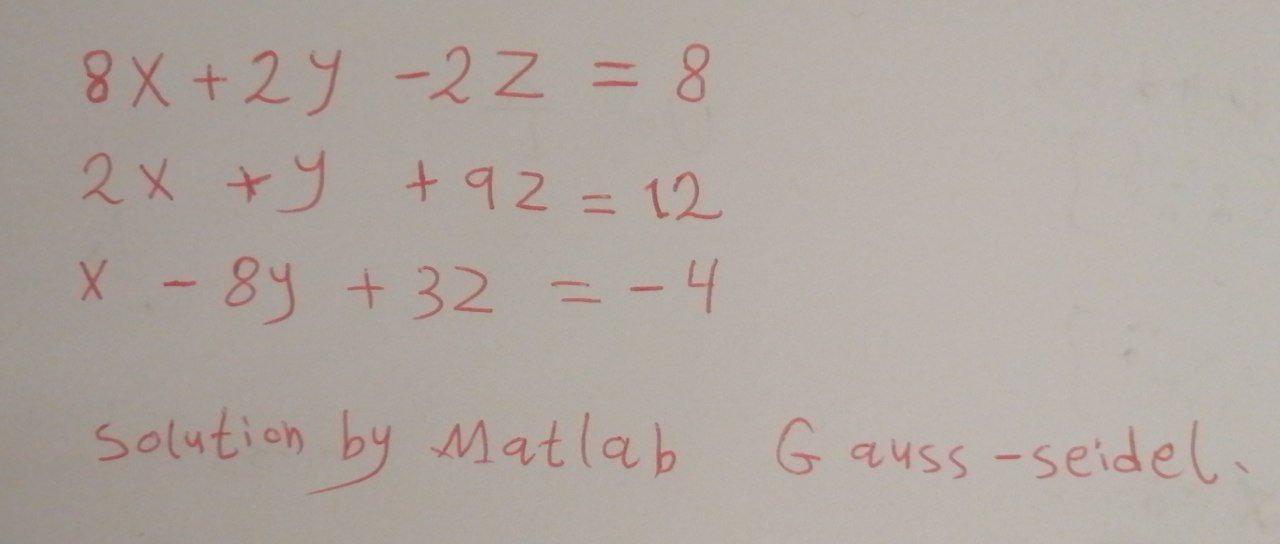 8x + 2y - 2z = 8
2x + y + 9z = 12
x - 8y + 3z = - 4
Solution by Matlab Gauss-seidel.